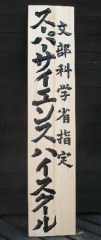 文部科学省指定
スーパーサイエンスハイスクール